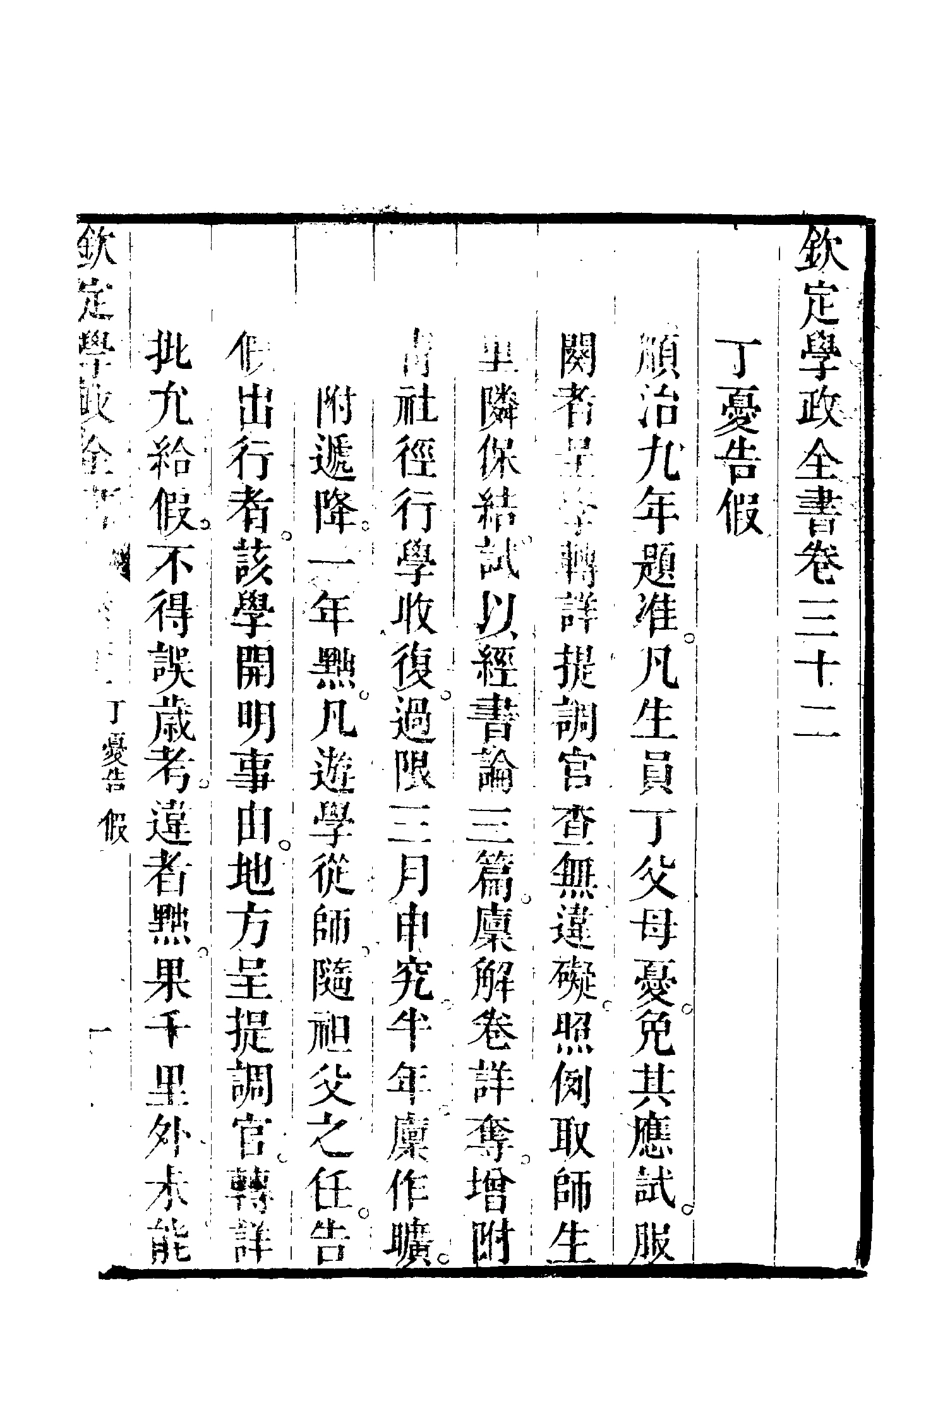 欽定學政全書卷三十二
丁憂告假
順治九年題准。凡生員丁父母憂。免其應試。服
闋者呈學轉詳提調官查無違礙。照例取師生
里隣保結。試以經書論三篇。廩解卷詳奪。增附
青社徑行學收復。過限三月申究。半年廩作曠。
附遞降。一年黜。凡遊學從師。隨祖父之任。告
假出行者。該學開明事由。地方呈提調官。轉詳
批允給假。不得誤歲考。違者黜。果千里外未能
欽定學政全書 丁憂告假 一